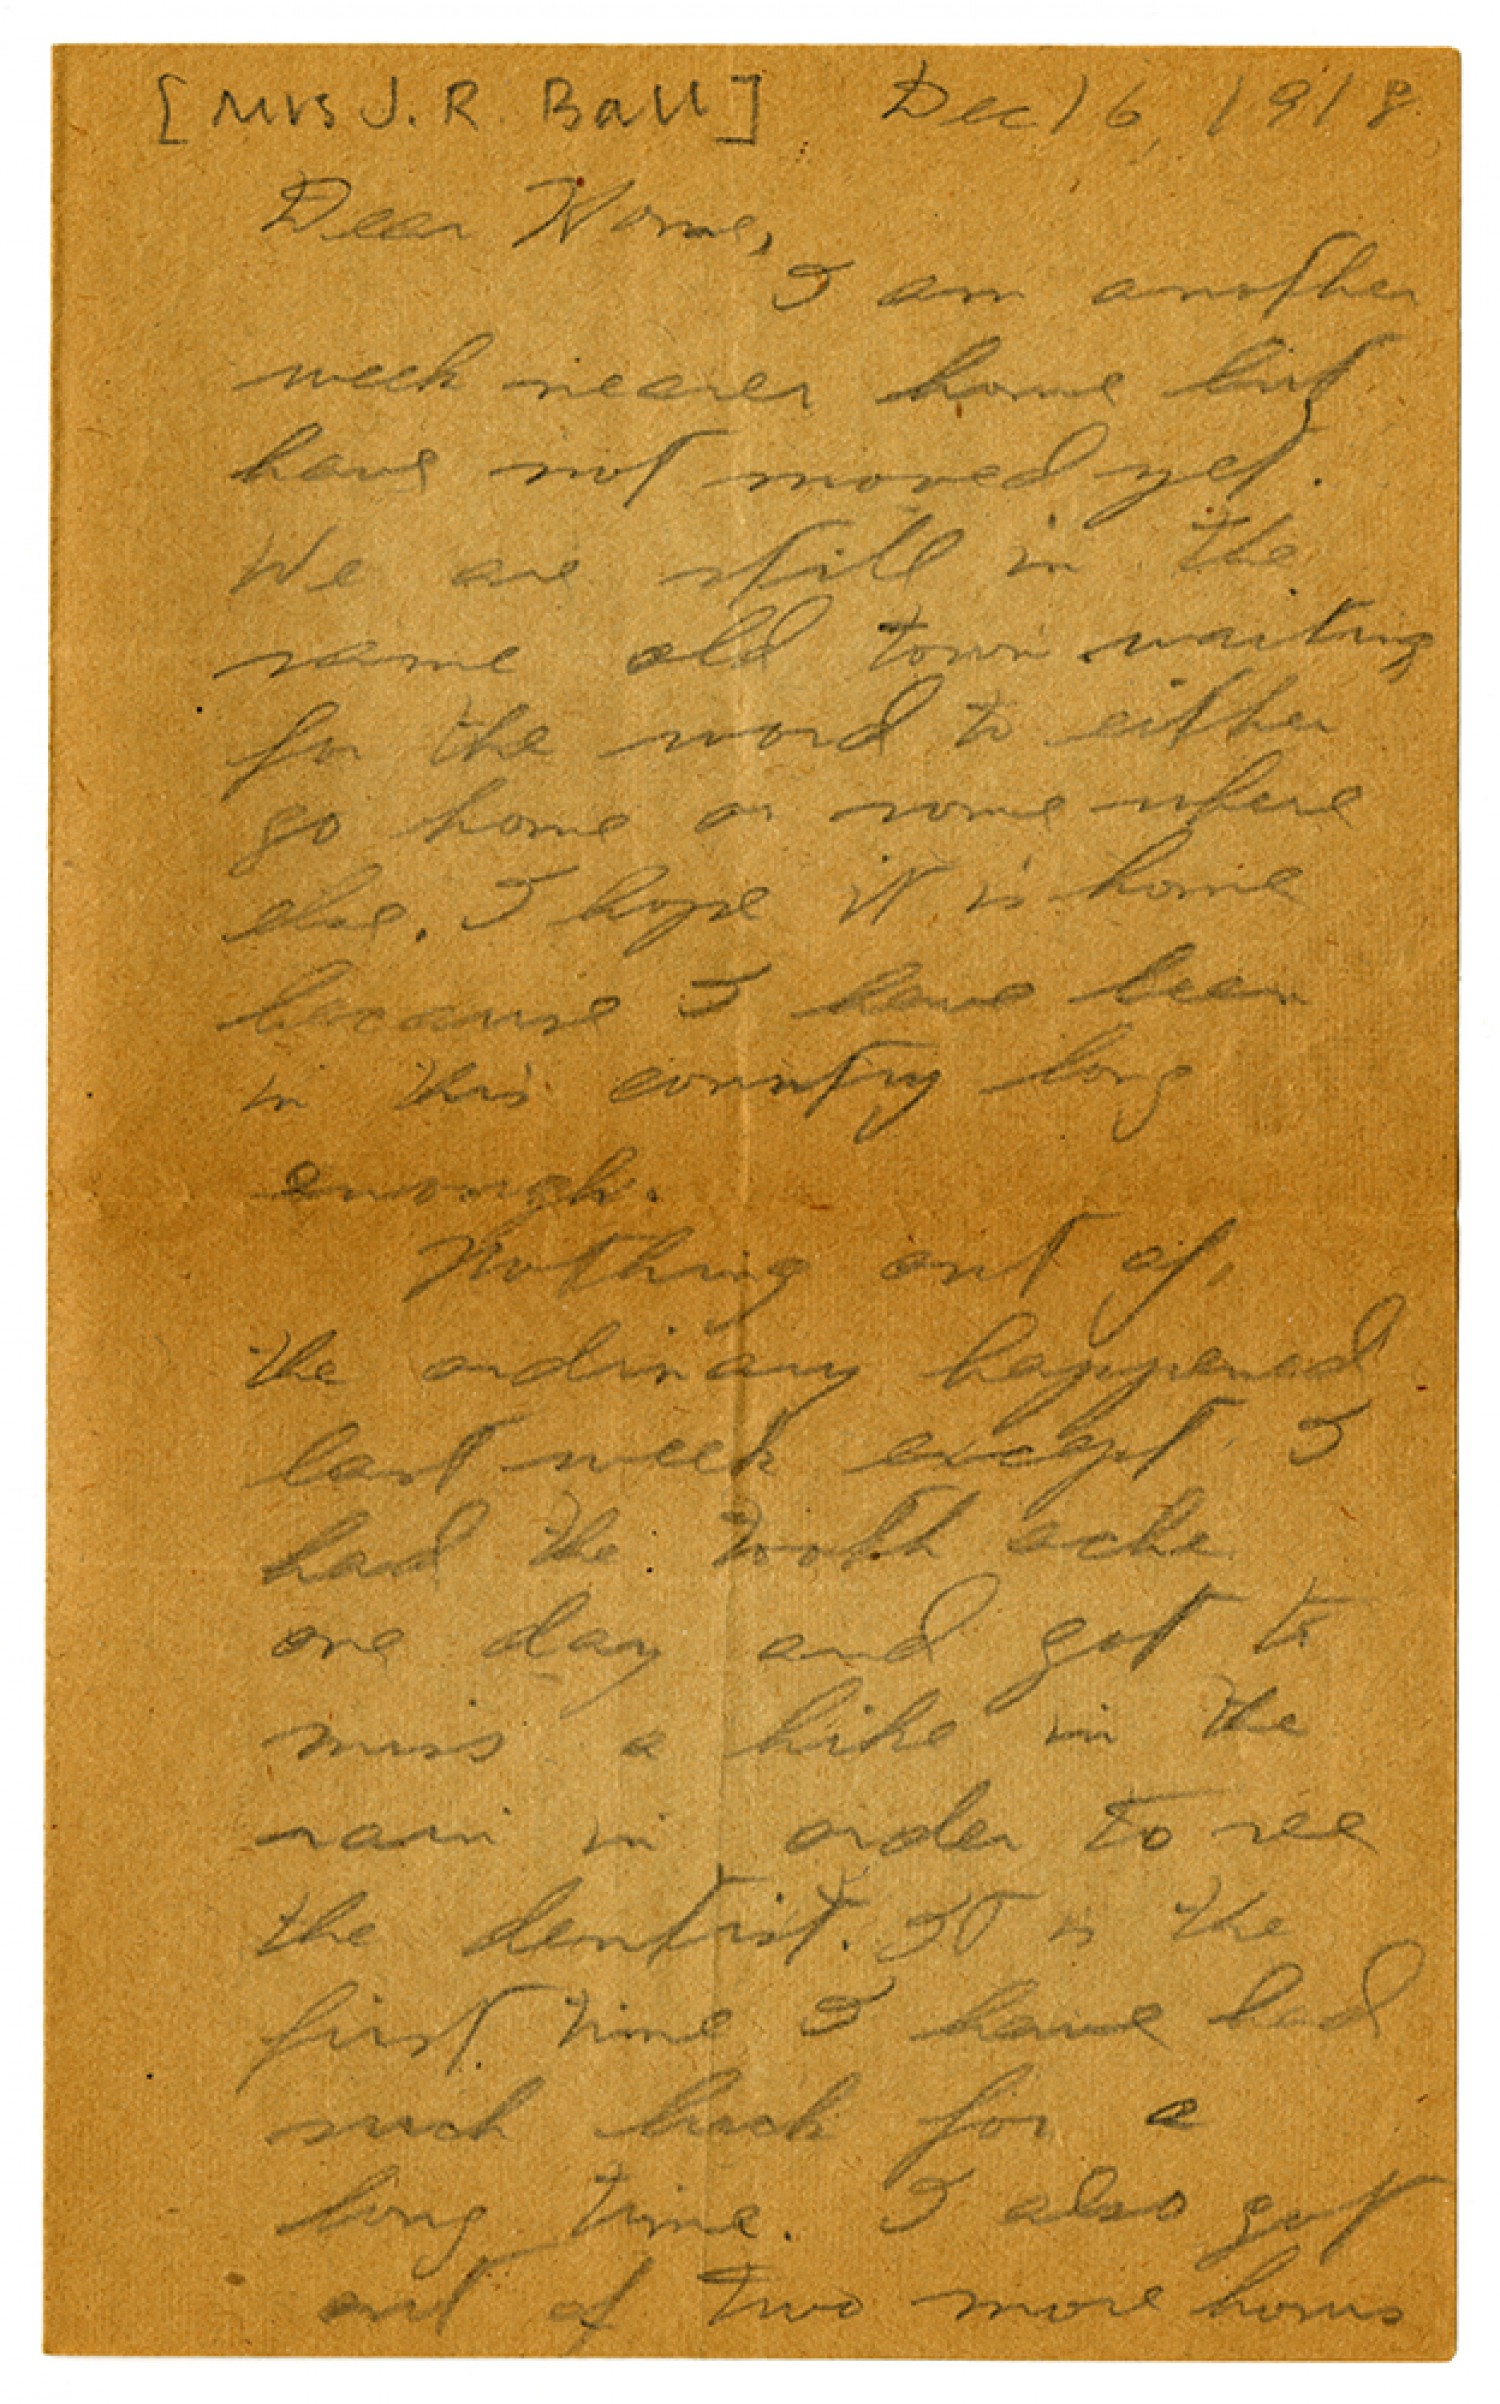 [Mrs J. R. Ball] Dec 16, 1918.
Dear Home,
I am another
week nearer home but
have not moved yet.
We are still in the
same old town waiting
for the word to either
go home or some where
else. I hope it is home
because I have been
in this country long
enough.
Nothing out of,
the ordinary happened
last week except I
had the tooth ache
one day and got to
miss a hike in the
rain in order to see
the dentist. It is the
first time I have had
such luck for a
long time. I also got
out of two more hours